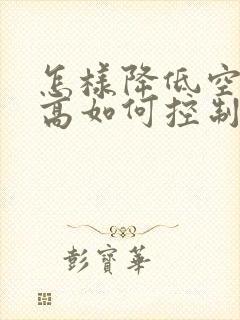 怎樣降低空
高如何控制
彭寳華